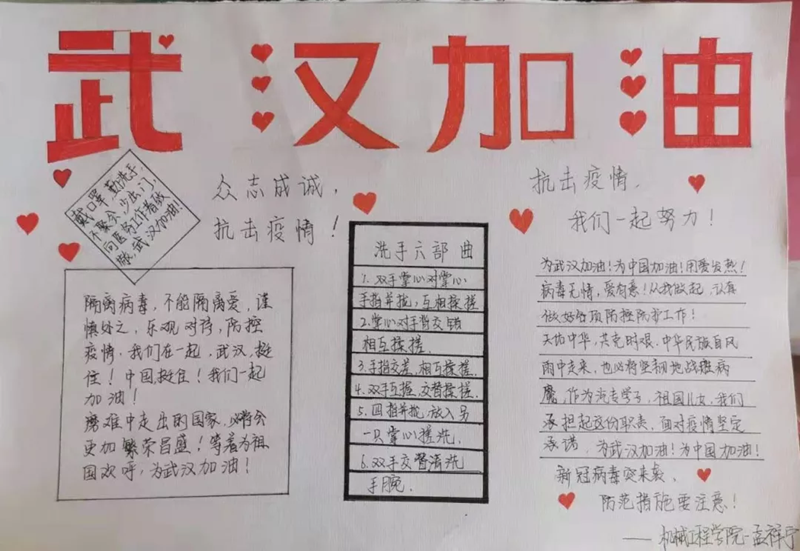 武汉加油
戴口罩 勤洗手
不聚会 少出门
向医务工作者致
敬,武汉加油!
众志成诚,
抗击疫情!
抗击疫情,
我们一起努力!
隔离病毒,不能隔离爱,谨
慎处之,乐观对待,防控
疫情,我们在一起,武汉,挺
住!中国挺住!我们一起
加油!
磨难中走出的国家,必将会
更加繁荣昌盛!等着为祖
国欢呼,为武汉加油!
洗手六部曲
1.双手掌心对掌心
手指并拢,互相揉搓
2.掌心对手背交锁
相互揉搓.
3.手指交搓,相互揉搓.
4.双手互握,交替揉搓.
5.四指并拢,放入另
一只掌心搓洗.
6.双手交替清洗
手腕.
为武汉加油!为中国加油!用爱发热!
病毒无情,爱有意!从我做起,认真
做好各项防控防劳工作!
天佑中华,共克时艰,中华民族自风
雨中走来,也必将坚韧地战胜病
魔,作为莘莘学子,祖国儿女,我们
承担起这份职责,面对疫情坚定
承诺,为武汉加油!为中国加油!
新冠病毒突来袭,
防范措施要注意!
——机械工程学院-孟祥宁